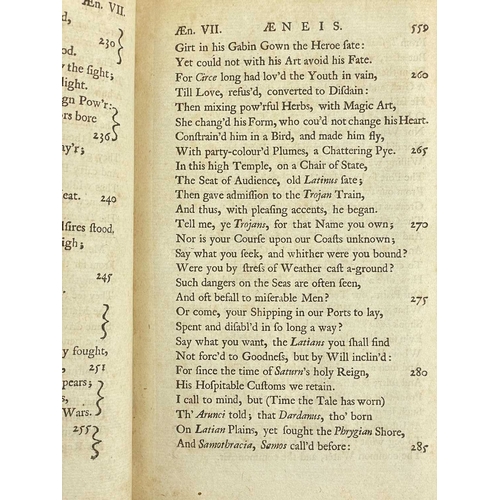 Æn. VII.
d,
230
od.
y the sight;
light.
ign Pow'r:
ors bore
236
ay'r;
eat. 240
lſires ſtood,
igh;
245
y fought,
251
pears;
s,
Wars.
255
Æn. VII. ÆNEIS. 559
Girt in his Gabin Gown the Heroe ſate:
Yet could not with his Art avoid his Fate.
For Circe long had lov'd the Youth in vain, 260
Till Love, refus'd, converted to Diſdain:
Then mixing pow'rful Herbs, with Magic Art,
She chang'd his Form, who cou'd not change his Heart.
Conſtrain'd him in a Bird, and made him fly,
With party-colour'd Plumes, a Chattering Pye. 265
In this high Temple, on a Chair of State,
The Seat of Audience, old Latinus ſate;
Then gave admiſſion to the Trojan Train,
And thus, with pleaſing accents, he began.
Tell me, ye Trojans, for that Name you own; 270
Nor is your Courſe upon our Coaſts unknown;
Say what you ſeek, and whither were you bound?
Were you by ſtreſs of Weather caſt a-ground?
Such dangers on the Seas are often ſeen,
And oft befall to miſerable Men? 275
Or come, your Shipping in our Ports to lay,
Spent and diſabl'd in ſo long a way?
Say what you want, the Latians you ſhall find
Not forc'd to Goodneſs, but by Will inclin'd:
For ſince the time of Saturn's holy Reign, 280
His Hoſpitable Cuſtoms we retain.
I call to mind, but (Time the Tale has worn)
Th' Arunci told; that Dardanus, tho' born
On Latian Plains, yet ſought the Phrygian Shore,
And Samothracia, Samos call'd before: 285